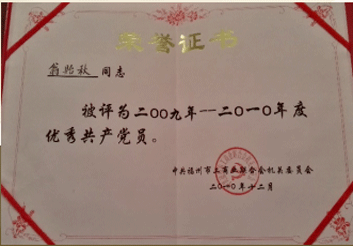 荣誉证书
翁贻秋 同志
被评为二〇〇九年--二〇一〇年度
优秀共产党员。
中共福州市工商业联合会机关委员会
二〇一〇年十二月